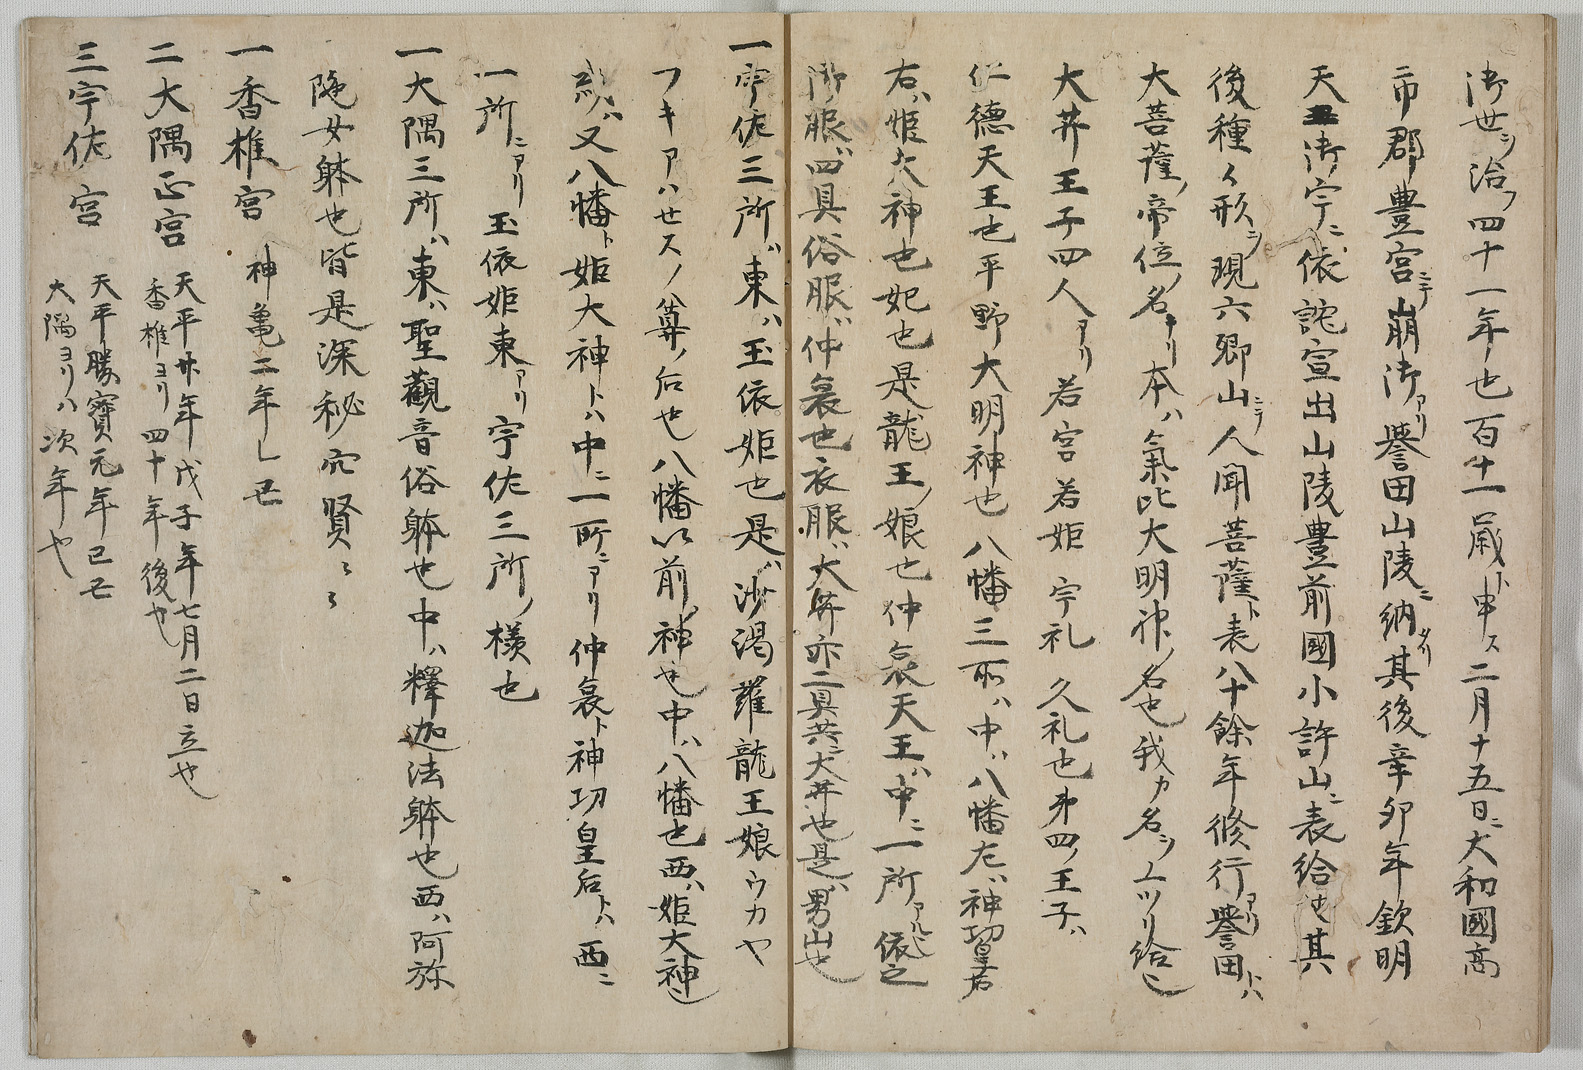 御世ヲ治フ四十一年也百十一歳ト申ス二月十五日ニ大和國高
市郡豊宮ニテ崩御アリ譽田山陵ニ納メリ其後辛卯年欽明
天皇御宇ニ依詑宣出山陵豊前國小許山ニ表給也其
後種々形ヲ現六郷山ニテ人聞菩薩ト表八十餘年修行アリ譽田トハ
大菩薩ノ帝位ノ名ナリ本ハ氣比大明神ノ名也我カ名ヲ上ツリ給
大井王子四人アリ若宮若姫宇礼久礼也第四ノ王子ハ
仁德天王也平野大明神也八幡三所ハ中ハ八幡左ハ神功皇后
右ハ姫大神也妃也是龍王ノ娘也仲哀天王ハ中ニ一所アルヘシ依之
御服ハ四具俗服ハ仲哀也衣服ハ大井亦二具共ニ大井也是ハ男山也
一宇佐三所ハ東ハ玉依姫也是ハ沙渇羅龍王娘ウカヤ
フキアハセスノ尊ノ后也八幡以前ノ神也中ハ八幡也西ハ姫大神也
或ハ又八幡ト姫大神トハ中ニ一所ニアリ仲哀ト神功皇后トハ西ニ
一所ニアリ玉依姫東アリ宇佐三所ノ樣也
一大隅三所ハ東ハ聖觀音俗躰也中ハ釋迦法躰也西ハ阿弥
陁女躰也皆是深秘穴賢〻〻
一香椎宮 神亀二年乚丑
二大隅正宮 天平廿年戊子年七月二日立也
香椎ヨリ四十年後也
三宇佐宮 天平勝寶元年己丑
大隅ヨリハ次年也